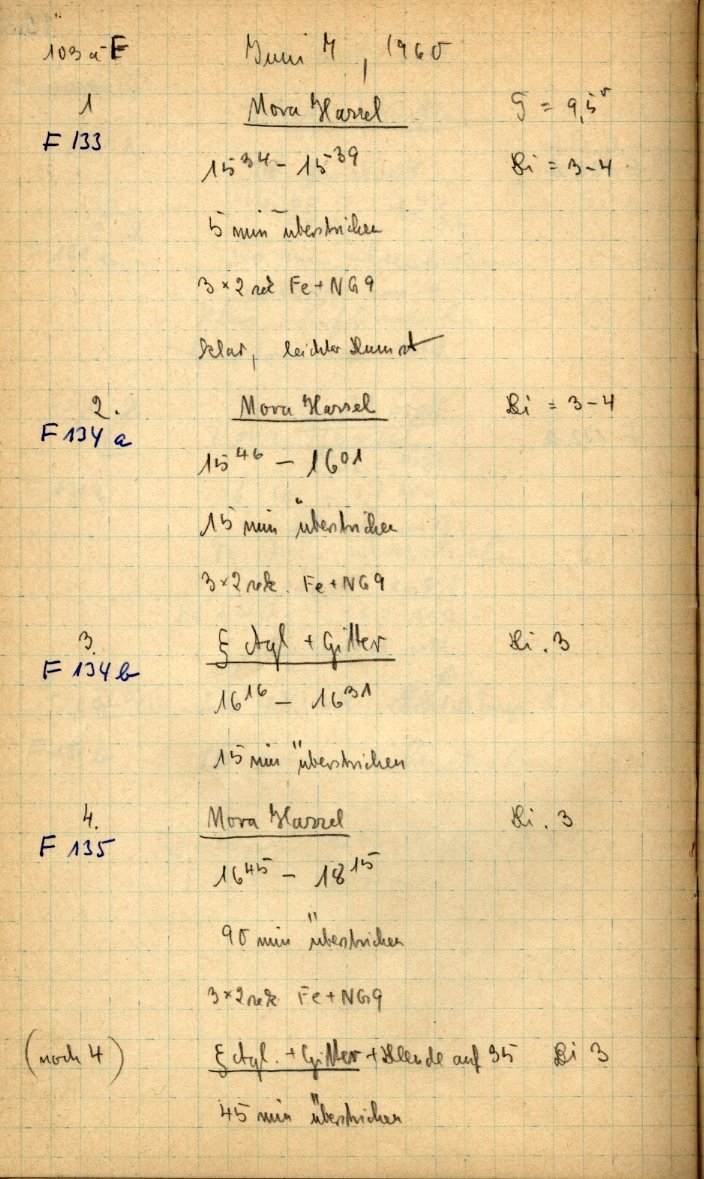 103a-E Juni 7, 1960
1 Nova Hassel T = 9,5
F 133
15³⁴ - 15³⁹ Bi = 3-4
5 min überstrichen
3×2 sek Fe+NG9
klar, leichter Dunst
2. Nova Hassel Bi = 3-4
F 134 a
15⁴⁶ - 16⁰¹
15 min überstrichen
3×2 sek. Fe+NG9
3. ξ Aql + Gitter Bi. 3
F 134 b
16¹⁶ - 16³¹
15 min überstrichen
4. Nova Hassel Bi. 3
F 135
16⁴⁵ - 18¹⁵
90 min überstrichen
3×2 sek Fe+NG9
(noch 4) ξ Aql. + Gitter + Blende auf 35 Bi 3
45 min überstrichen